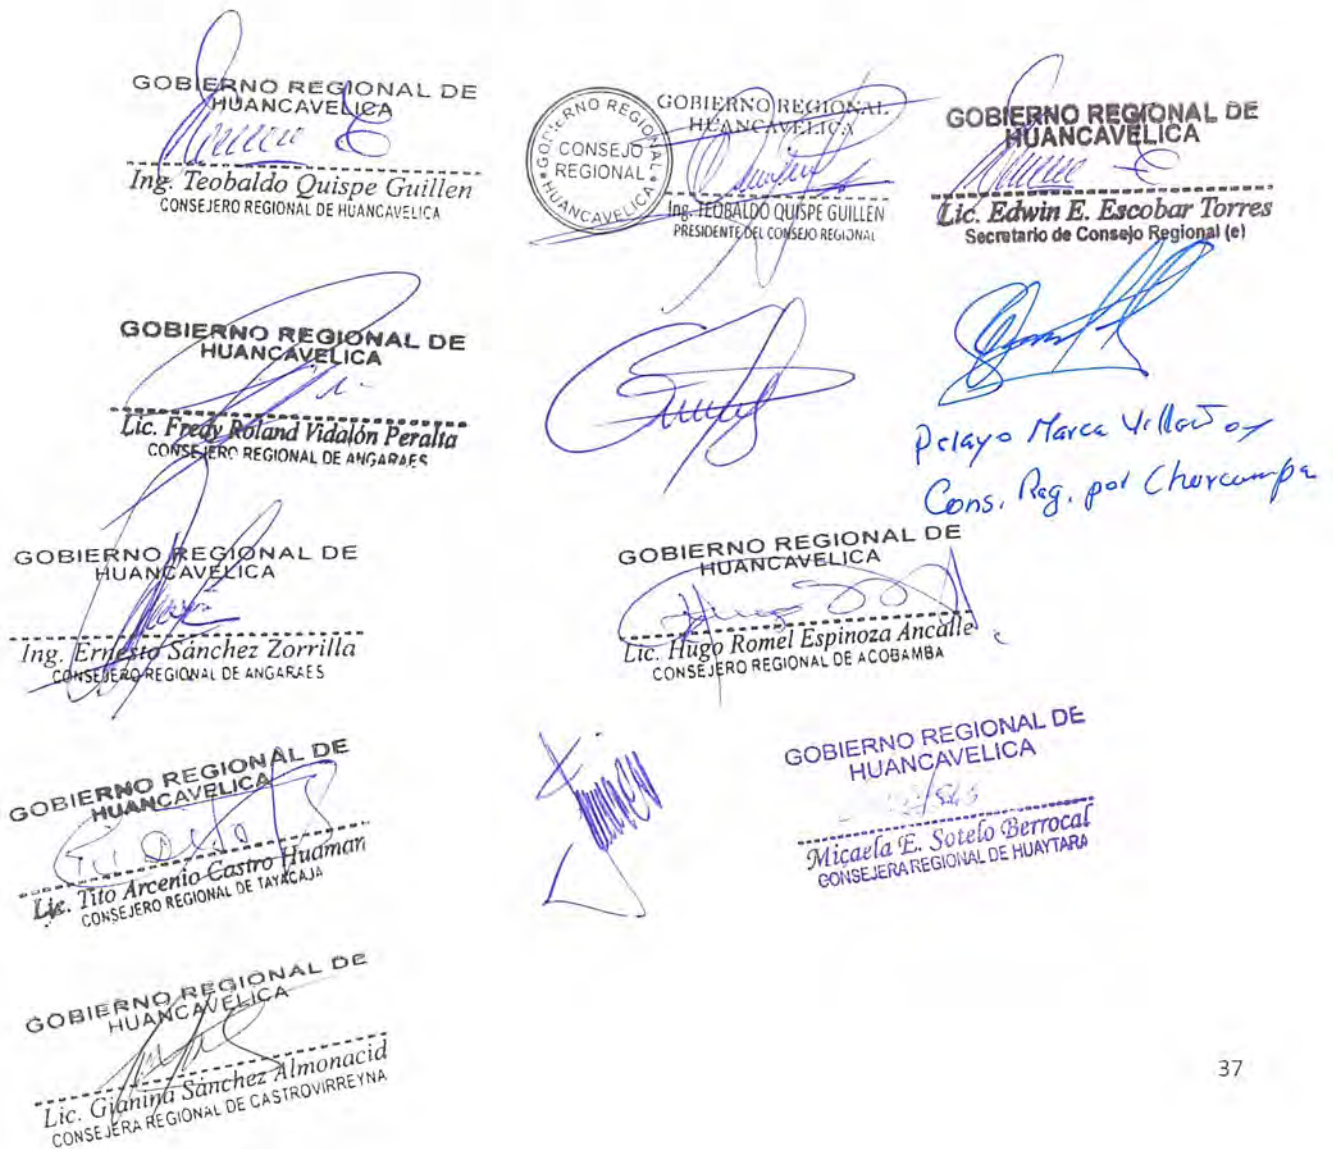 GOBIERNO REGIONAL DE
HUANCAVELICA
Ing. Teobaldo Quispe Guillen
CONSEJERO REGIONAL DE HUANCAVELICA
GOBIERNO REGIONAL
HUANCAVELICA
CONSEJO
REGIONAL
GOBIERNO REGIONAL
HUANCAVELICA
Ing. TEOBALDO QUISPE GUILLEN
PRESIDENTE DEL CONSEJO REGIONAL
GOBIERNO REGIONAL DE
HUANCAVELICA
Lic. Edwin E. Escobar Torres
Secretario de Consejo Regional (e)
GOBIERNO REGIONAL DE
HUANCAVELICA
Lic. Fredy Roland Vidalón Peralta
CONSEJERO REGIONAL DE ANGARAES
Pelayo Marca
Cons. Reg. por Churcampa
GOBIERNO REGIONAL DE
HUANCAVELICA
Ing. Ernesto Sánchez Zorrilla
CONSEJERO REGIONAL DE ANGARAES
GOBIERNO REGIONAL DE
HUANCAVELICA
Lic. Hugo Romel Espinoza Ancalle
CONSEJERO REGIONAL DE ACOBAMBA
GOBIERNO REGIONAL DE
HUANCAVELICA
Lic. Tito Arcenio Castro Huaman
CONSEJERO REGIONAL DE TAYACAJA
GOBIERNO REGIONAL DE
HUANCAVELICA
Micaela E. Sotelo Berrocal
CONSEJERA REGIONAL DE HUAYTARA
GOBIERNO REGIONAL DE
HUANCAVELICA
Lic. Gianina Sánchez Almonacid
CONSEJERA REGIONAL DE CASTROVIRREYNA
37